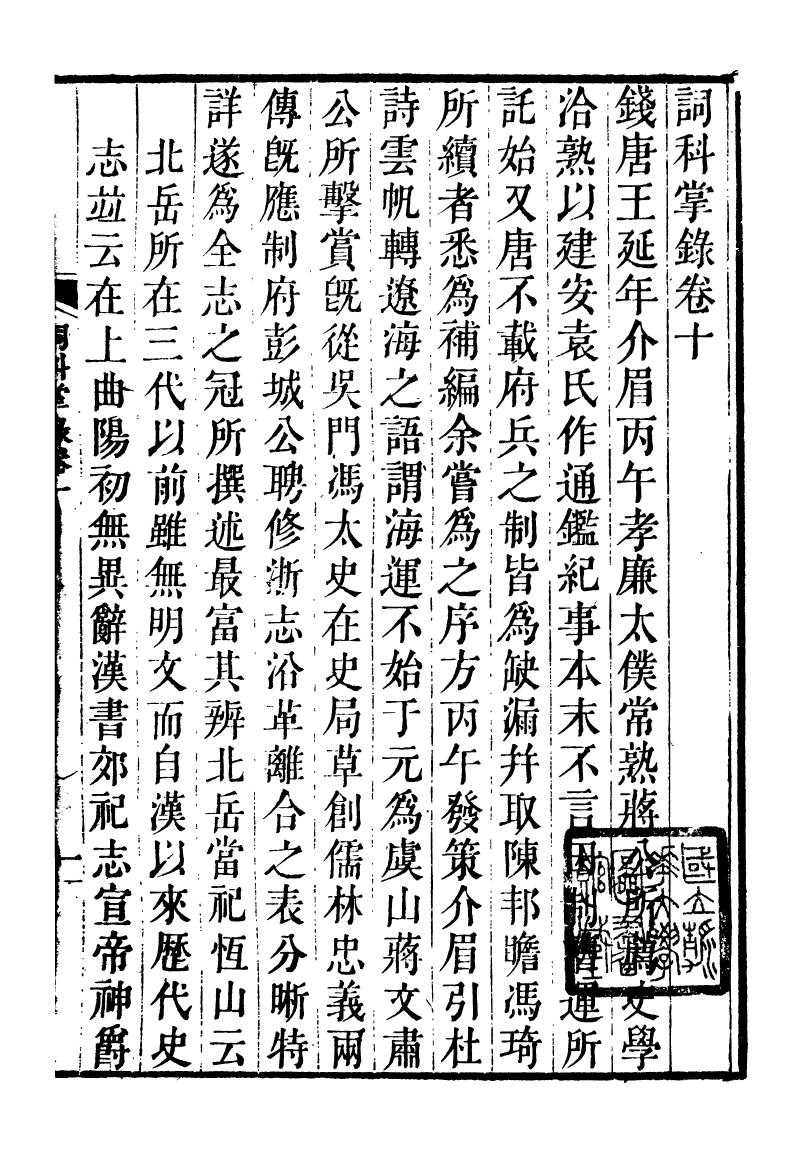 詞科掌錄卷十
錢唐王延年介眉丙午孝廉太僕常熟蔣公所薦史學
洽熟以建安袁氏作通鑑紀事本末不言田制漕運所
託始又唐不載府兵之制皆爲缺漏幷取陳邦瞻馮琦
所續者悉爲補編余嘗爲之序方丙午發策介眉引杜
詩雲帆轉遼海之語謂海運不始于元爲虞山蔣文肅
公所擊賞旣從吳門馮太史在史局草創儒林忠義兩
傳旣應制府彭城公聘修浙志沿革離合之表分晰特
詳遂爲全志之冠所撰述最富其辨北岳當祀恆山云
北岳所在三代以前雖無明文而自漢以來歷代史
志竝云在上曲陽初無異辭漢書郊祀志宣帝神爵
詞科掌錄卷十
一
國立